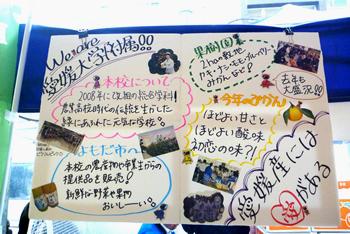 We are
愛媛大学附属!!
本校について
2008年に開校の総合学科!!
農業高校時代の伝統を生かした
緑にあふれた元気な学校。
よもだ市へ
本校の農産物や卒業生からの
提供品を販売!
新鮮な野菜や果物
おいしーい!。
果樹園
21haの敷地
カキ・ナシ・モモ・ブルーベリー
みかんなど!
去年も
大盛況!!
今年のみかん
ほどよい甘さと
ほどよい酸味
初恋の味?!
愛媛産には
愛がある